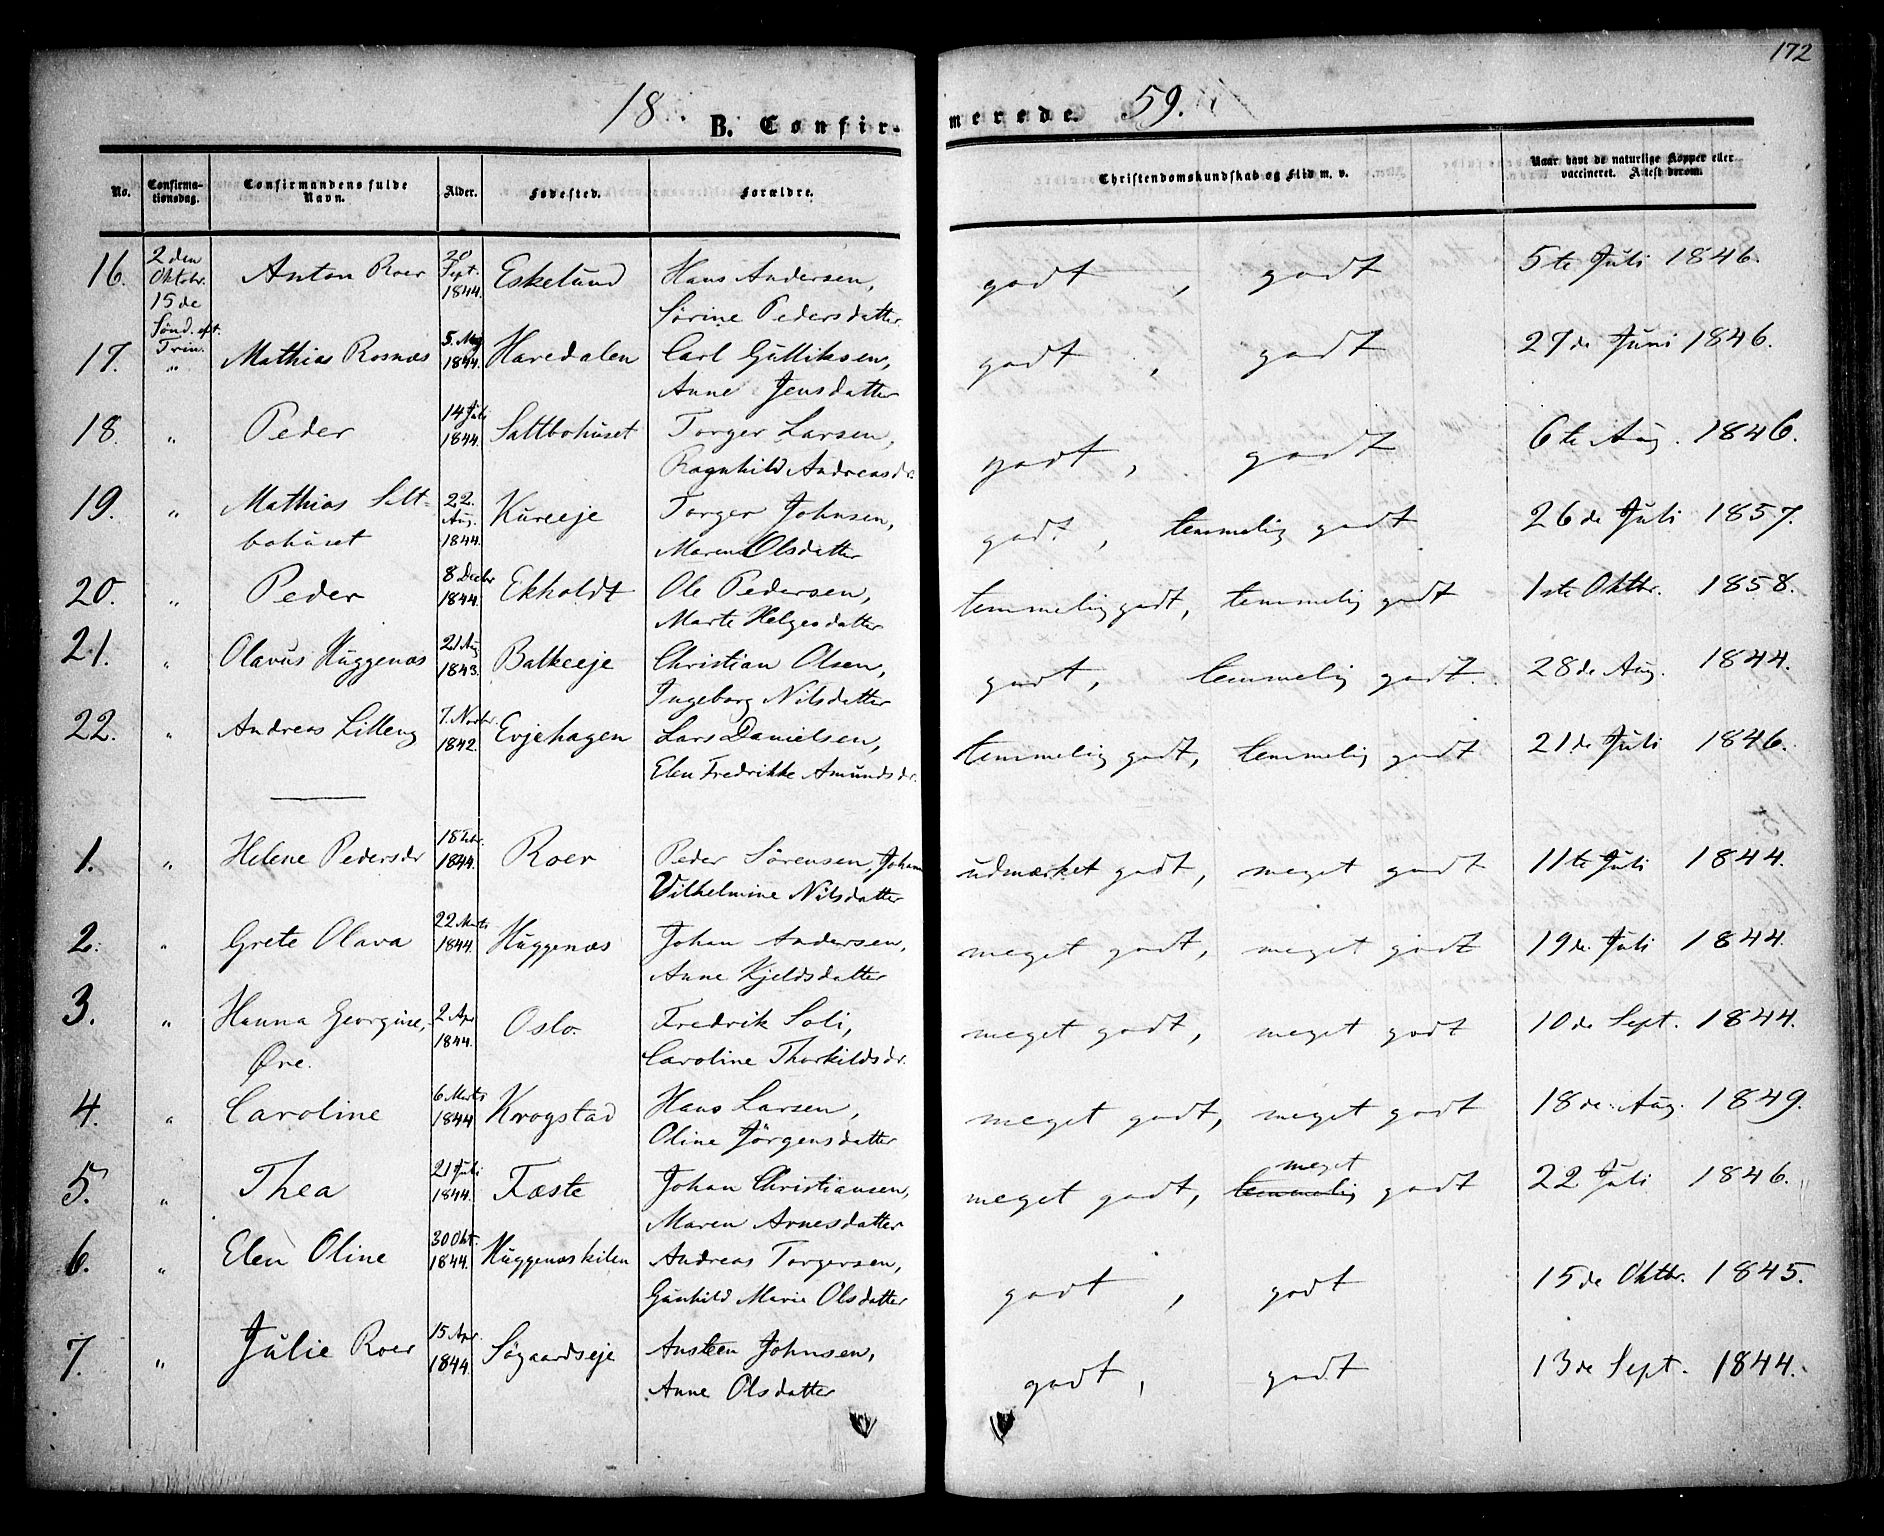 172
18 B. Confirmerede 59.
No. Confirmationsdag. Confirmandens fulde Navn. Alder. Fødested. Forældre. Christendomskundskab og Flid m. v. Naar havt de naturlige Kopper eller vaccineret. Attest derom.
16. 2den Oktobr. 15de Sønd. eft. Trin. Anton Roer 20 Sept. 1844. Eskelund Hans Andersen, godt, godt 5te Juli 1846.
Sörine Pedersdatter
17. " Mathias Rosnæs 5. Maj 1844. Haredalen Carl Gulliksen, godt, godt 27de Juni 1846.
Anne Jensdatter
18. " Peder 14 Juli 1844. Saltbohuset Torger Larsen, godt, godt 6te Aug. 1846.
Ragnhild Andreasdr.
19. " Mathias Salt- 22. Aug. 1844. Kureeje Torger Johnsen, godt, temmelig godt 26de Juli 1857.
bohuset Maren Olsdatter
20. " Peder 8 Decbr 1844. Ekholdt Ole Pedersen, temmelig godt, temmelig godt 1ste Oktbr. 1858.
Marte Helgesdatter
21. " Olavus Huggenæs 21 Aug 1843. Balkeeje Christian Olsen, godt, temmelig godt. 28de Aug. 1844.
Ingeborg Nilsdatter
22. " Andreas Lilleng 7. Novbr. 1842. Evjehagen Lars Danielsen, temmelig godt, temmelig godt 21de Juli 1846.
Elen Fredrikke Amundsdr.
1. " Helene Pedersdr 1844. Roer Peder Sörensen, Johan udmærket godt, meget godt 11te Juli 1844.
Vilhelmine Nilsdatter
2. " Grete Olava 22 Marts 1844. Huggenæs Johan Andersen, meget godt, meget godt 19de Juli 1844.
Anne Kjeldsdatter
3. " Hanna Georgine, 2 Apr 1844. Oslo. Fredrik Soli, meget godt, meget godt 10de Sept. 1844.
Øre. Caroline Thorkildsdr.
4. " Caroline 6 Marts 1844 Krogstad Hans Larsen, meget godt, meget godt 18de Aug. 1849.
Oline Jörgensdatter
5. " Thea 21 Juli 1844. Fæste Johan Christiansen, meget godt, temmelig meget godt 22 Juli 1846.
Maren Arnesdatter
6. " Elen Oline 30 Okt. 1844. Huggenæskilen Andreas Torgersen, godt, godt 15de Oktbr. 1845.
Gunhild Marie Olsdatter
7. " Julie Roer 15 Apr. 1844 Sögaardseje Ansteen Johnsen, godt, godt 13de Sept. 1844.
Anne Olsdatter